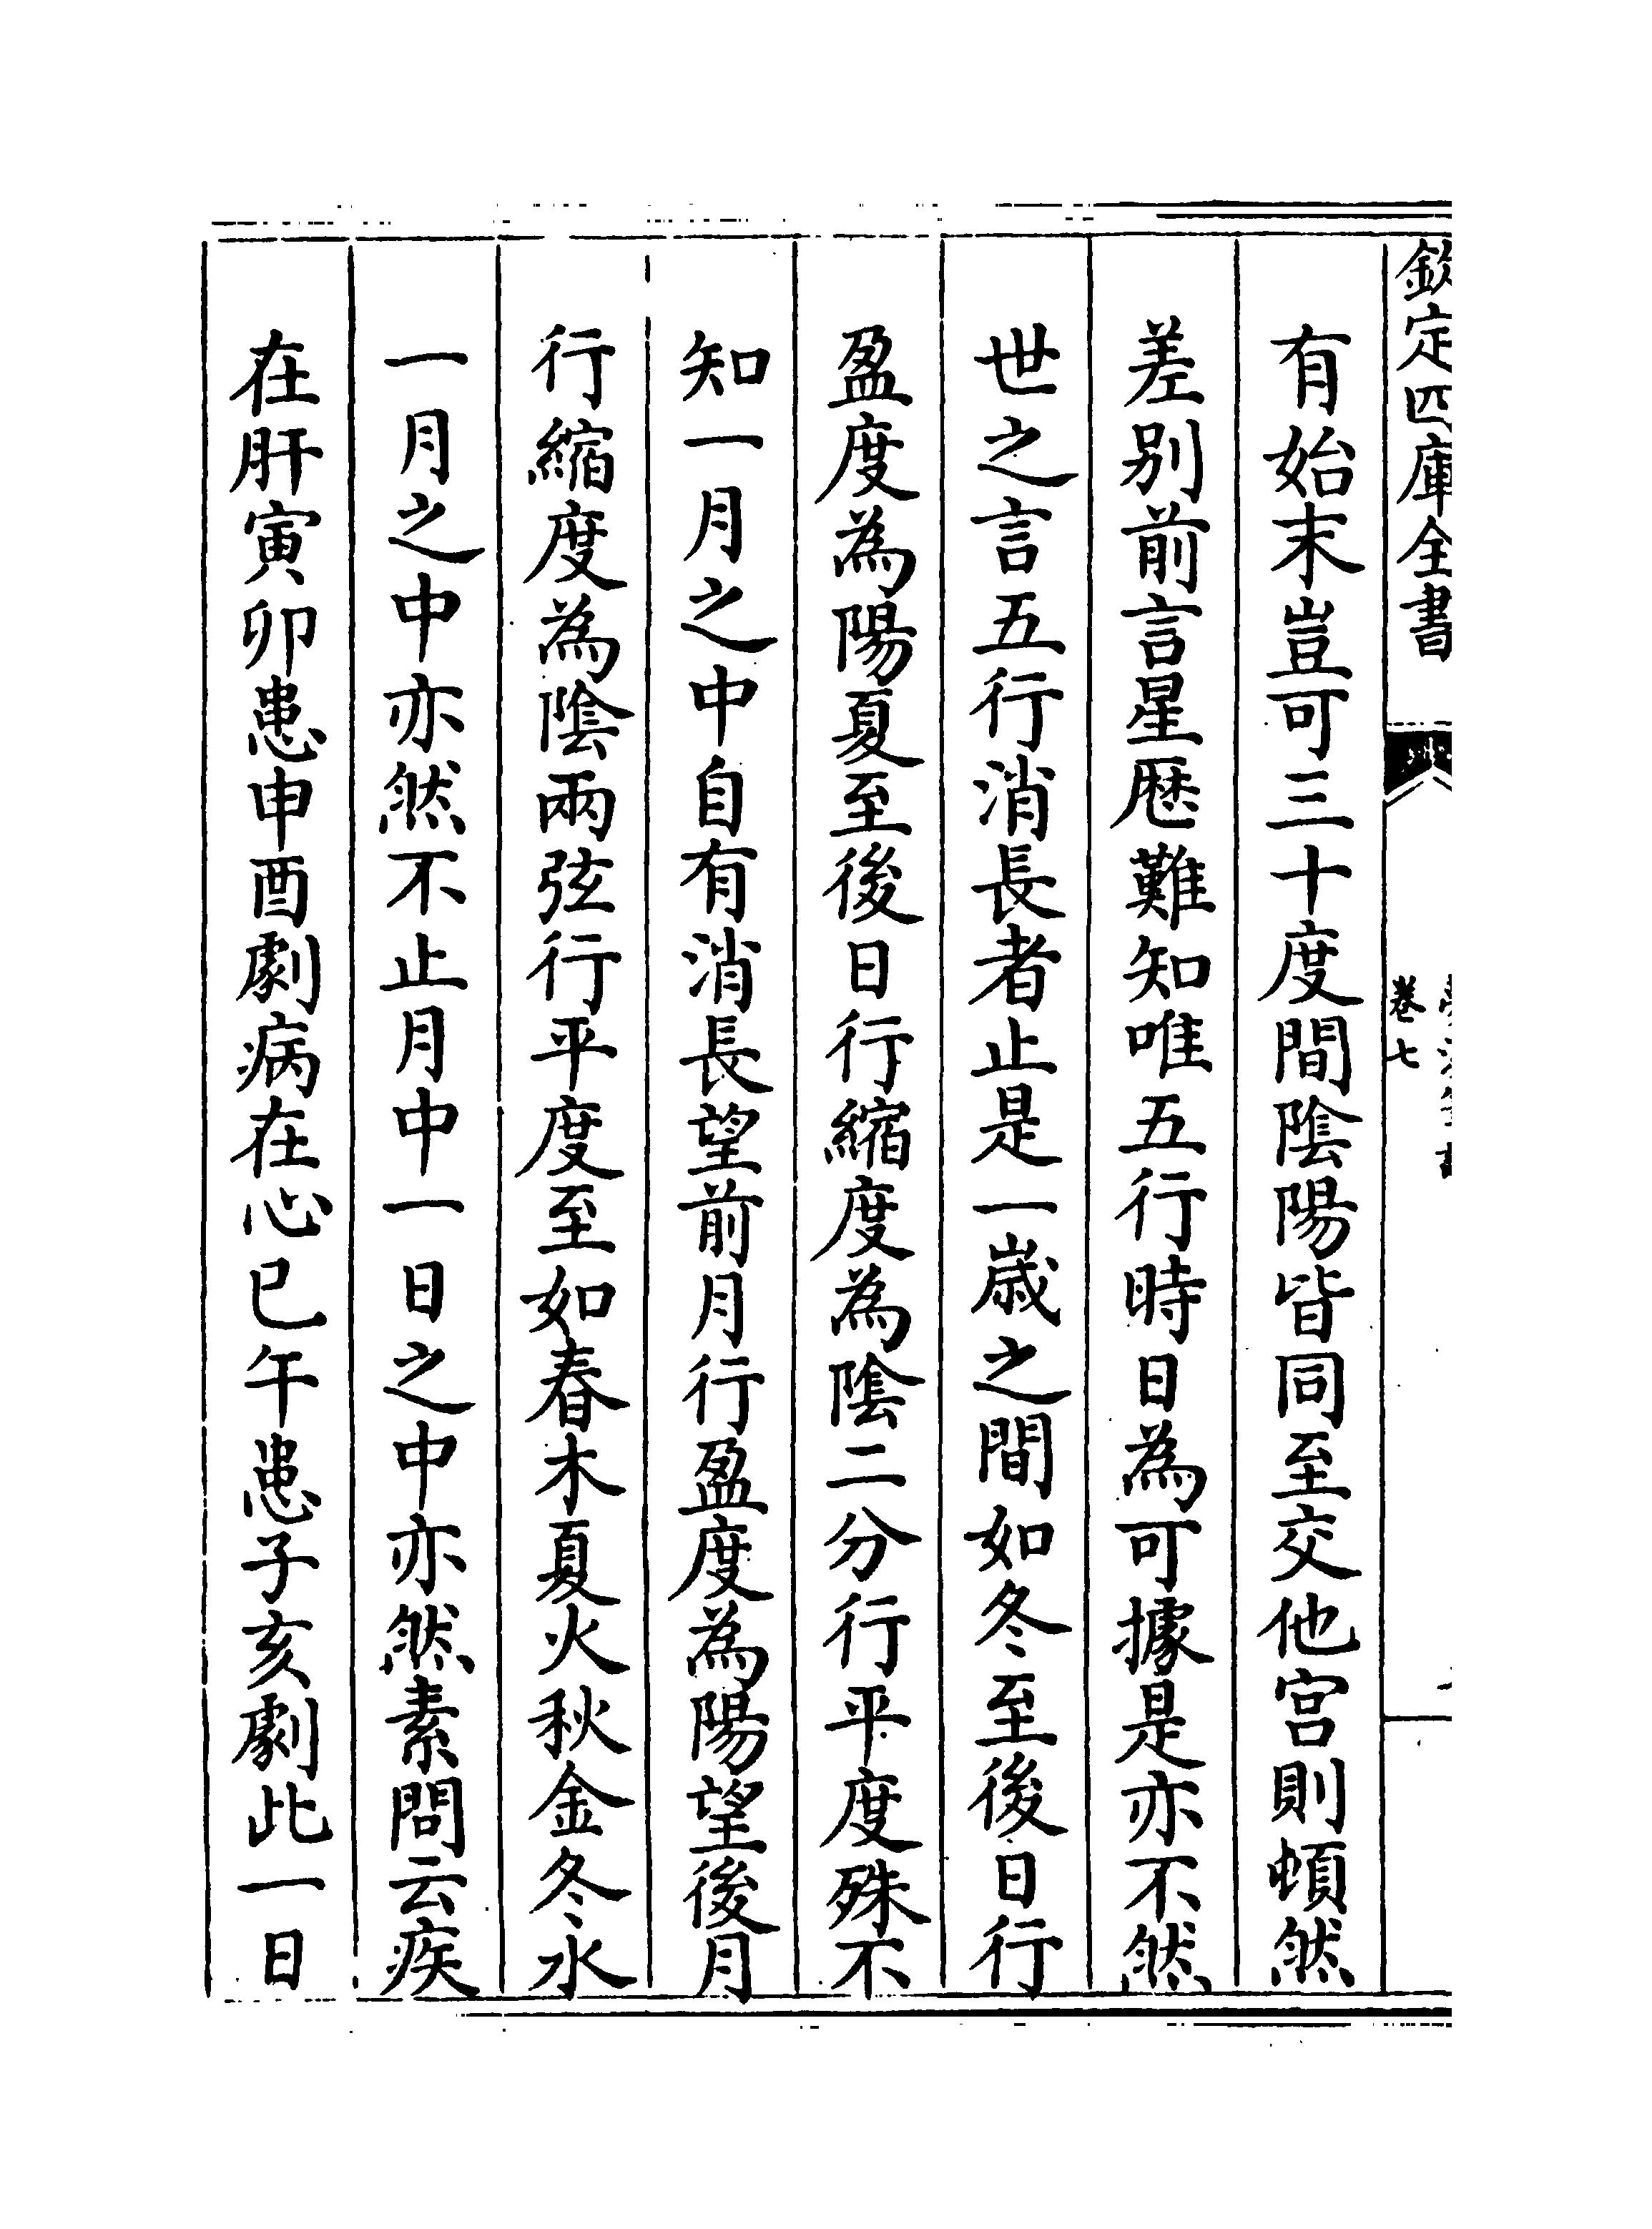 欽定四庫全書
卷七
有始末豈可三十度間陰陽皆同至交他宮則頓然
差别前言星厯難知唯五行時日為可據是亦不然
世之言五行消長者止是一歳之間如冬至後日行
盈度為陽夏至後日行縮度為陰二分行平度殊不
知一月之中自有消長望前月行盈度為陽望後月
行縮度為陰兩弦行平度至如春木夏火秋金冬水
一月之中亦然不止月中一日之中亦然素問云疾
在肝寅卯患申酉劇病在心巳午患子亥劇此一日